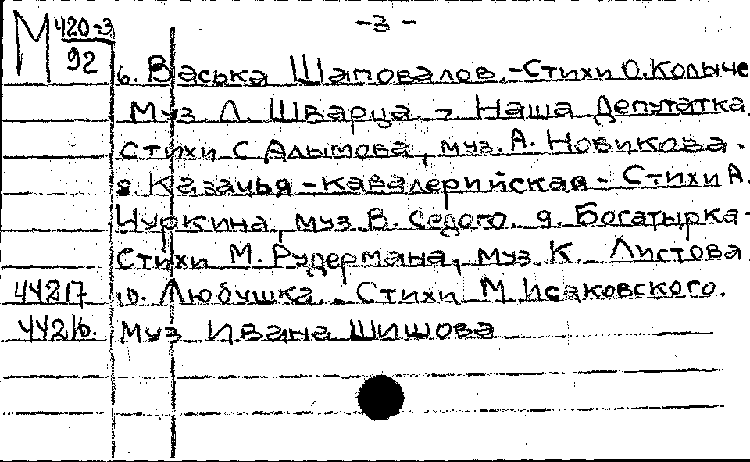 М 420-3
92
-3-
6. Васька Шаповалов. - Стихи О. Колыче
Муз Л. Шварца. 7. Наша Депутатка
Стихи С Алымова, муз. А. Новикова.
8. Казачья - кавалерийская - Стихи А.
Чуркина, муз. В. Седого. 9. Богатырка -
Стихи М. Рудермана, муз. К. Листова
44217 10. Любушка. Стихи М. Исаковского.
4421б. муз Ивана Шишова